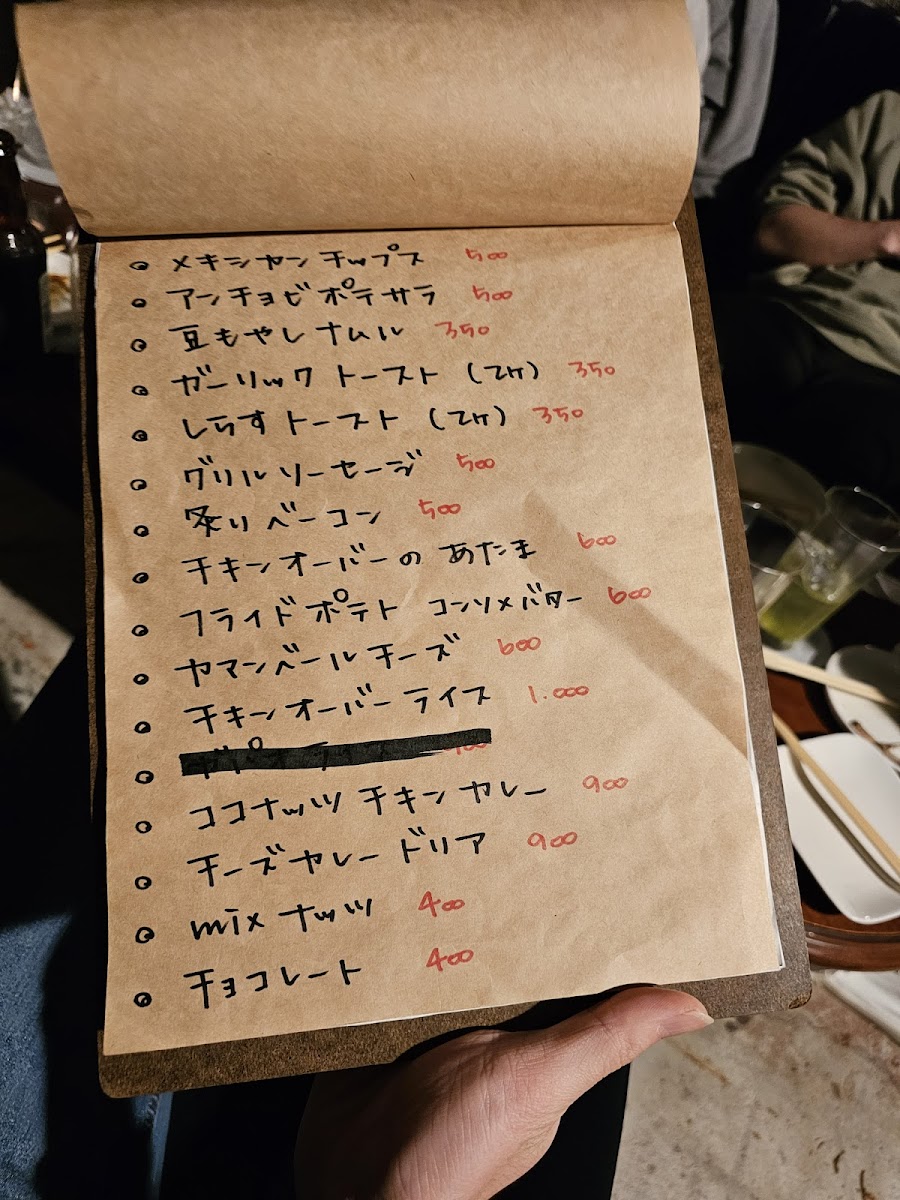 メキシカンチップス 500
アンチョビポテサラ 500
豆もやしナムル 350
ガーリックトースト (2ヶ) 350
しらすトースト (2ヶ) 350
グリルソーセージ 500
炙りベーコン 500
チキンオーバーの あたま 600
フライドポテト コンソメバター 600
カマンベールチーズ 600
チキンオーバーライス 1.000
ココナッツチキンカレー 900
チーズカレードリア 900
mixナッツ 400
チョコレート 400